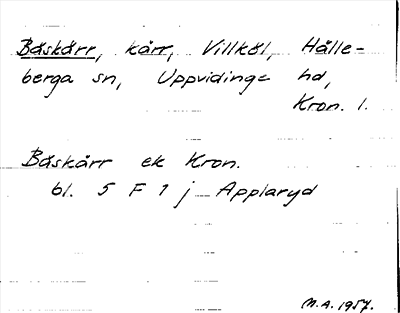 Båskårr, kårr, Villköl, Hälle-
berga sn, Uppvidinge hd,
Kron. l.
Båskårr ek Kron.
bl. 5 F 1 j Applaryd
M.A. 1957.